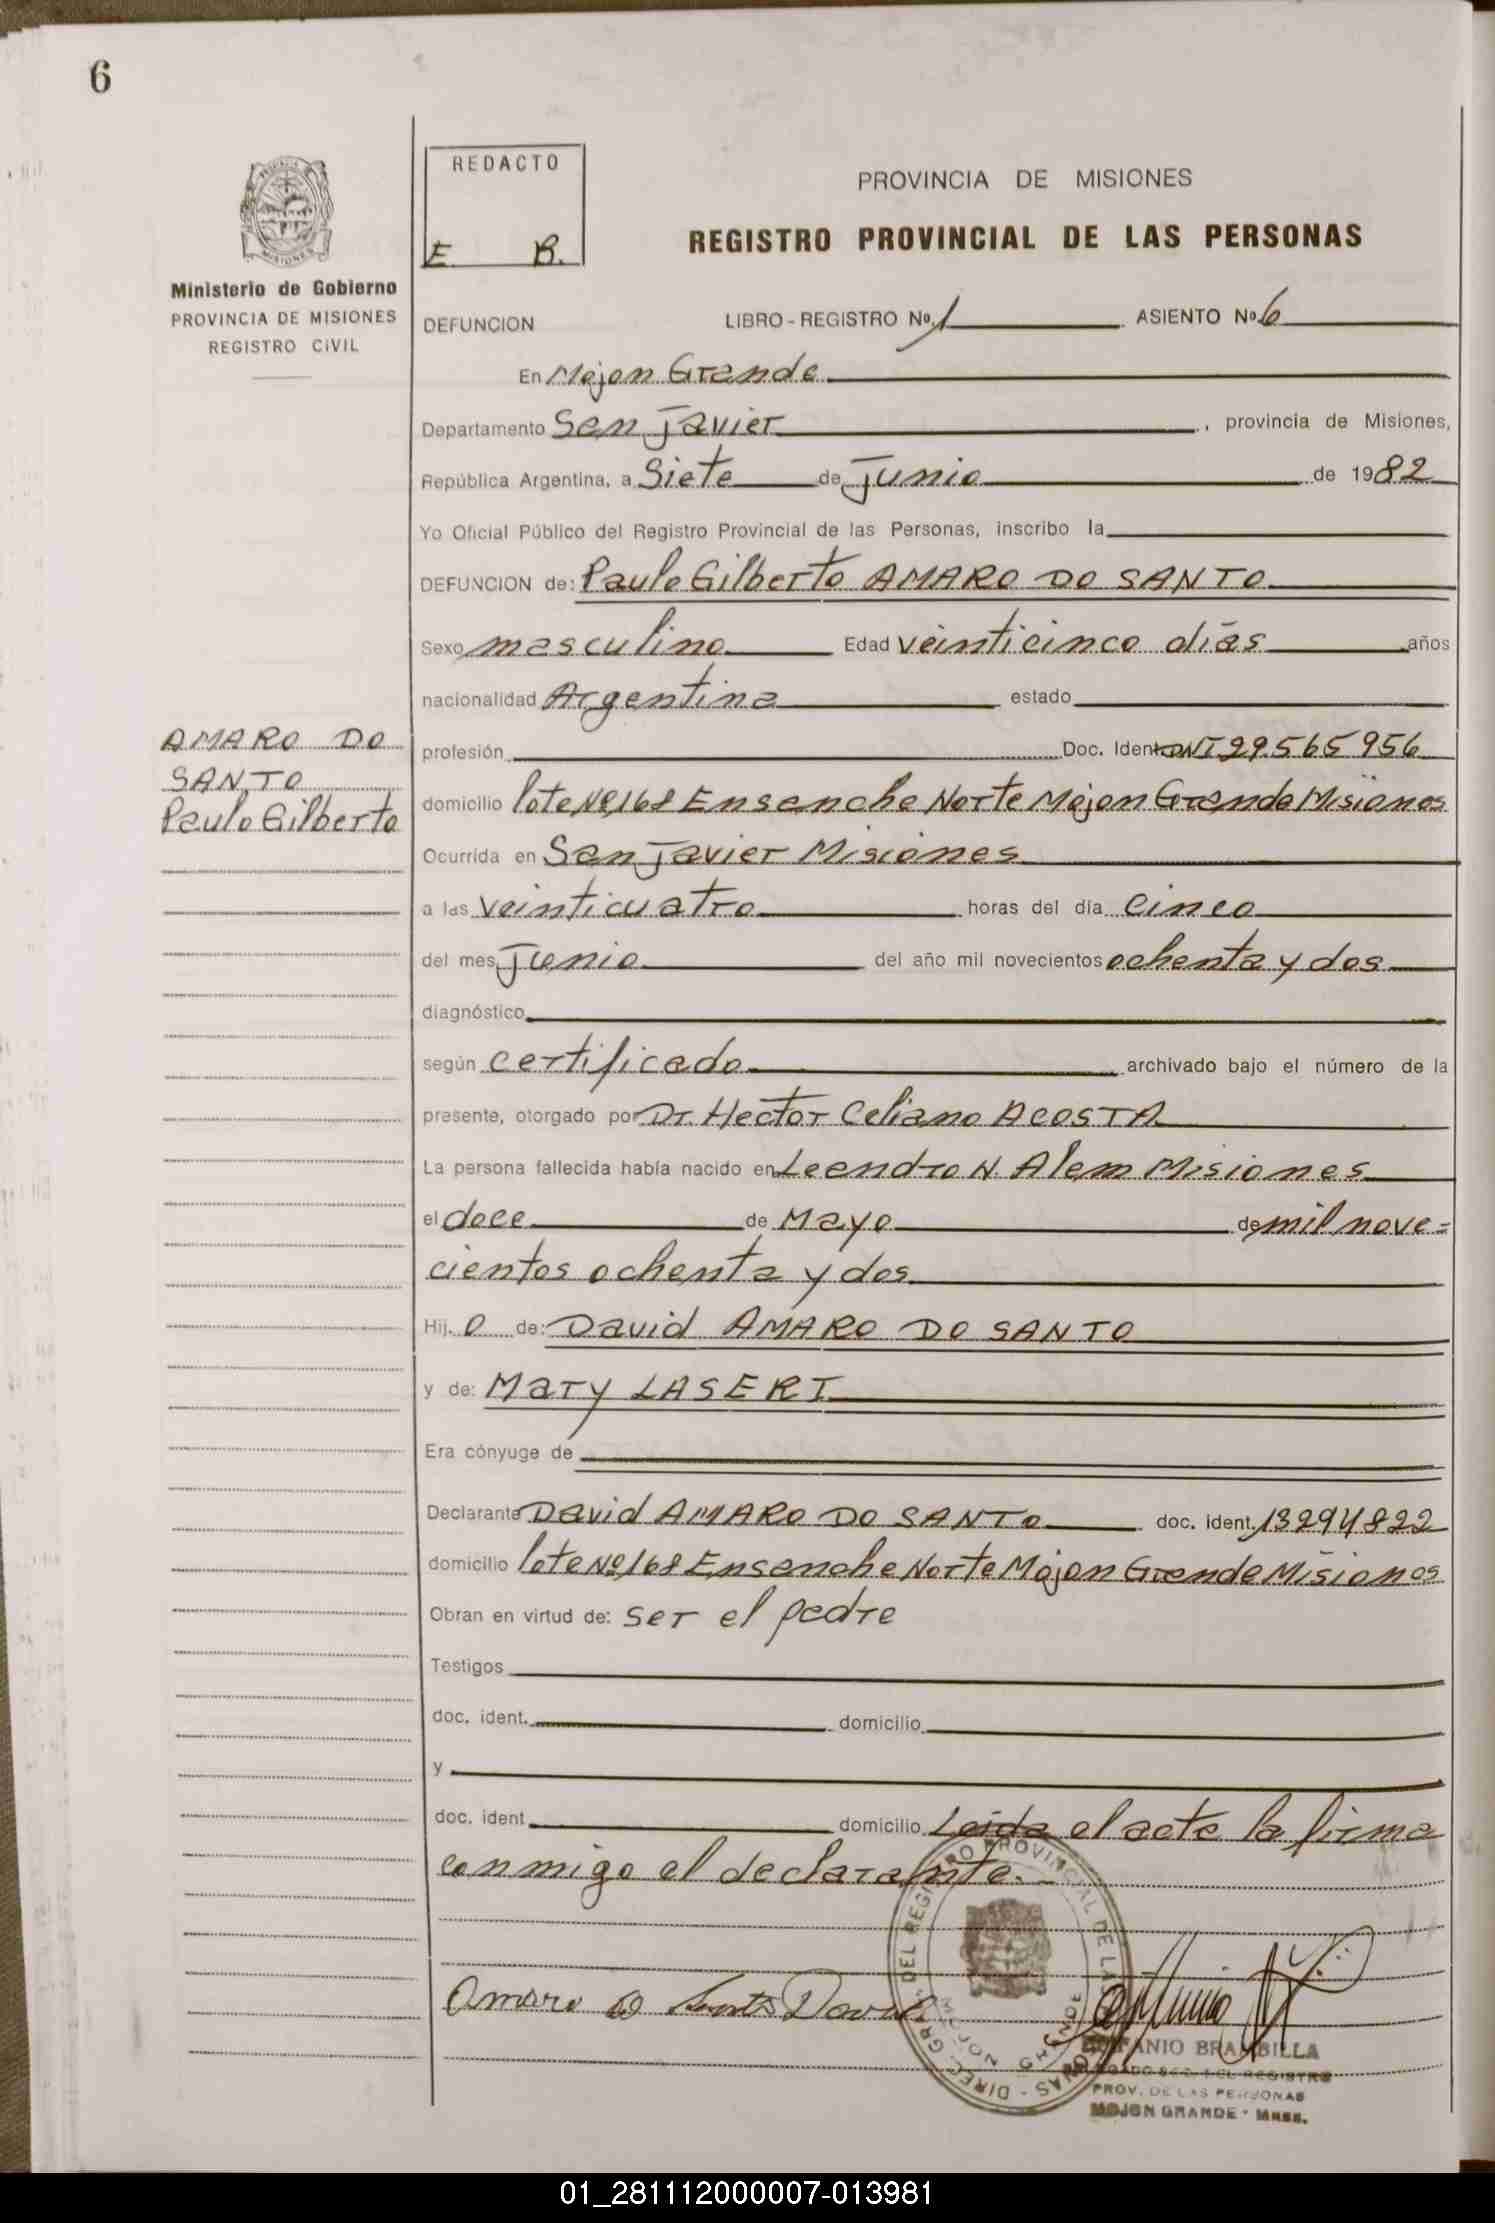 6
REDACTO
E. B.
PROVINCIA DE MISIONES
REGISTRO PROVINCIAL DE LAS PERSONAS
Ministerio de Gobierno
PROVINCIA DE MISIONES
REGISTRO CIVIL
DEFUNCION LIBRO - REGISTRO Nº 1 ASIENTO Nº 6
En Mojon Grande
Departamento San Javier, provincia de Misiones,
República Argentina, a Siete de Junio de 1982
Yo Oficial Público del Registro Provincial de las Personas, inscribo la
DEFUNCION de: Paulo Gilberto AMARO DO SANTO
Sexo masculino Edad veinticinco dias años
nacionalidad Argentina estado
AMARO DO
SANTO
Paulo Gilberto
profesión Doc. Ident. DNI 29.565.956
domicilio lote Nº 168 Ensanche Norte Mojon Grande Misiones
Ocurrida en San Javier Misiones
a las veinticuatro horas del día cinco
del mes Junio del año mil novecientos ochenta y dos
diagnóstico
según certificado archivado bajo el número de la
presente, otorgado por Dr. Hector Celiano ACOSTA
La persona fallecida había nacido en Leandro N. Alem Misiones
el doce de Mayo de mil nove=
cientos ochenta y dos
Hij. o de: David AMARO DO SANTO
y de: Mary LASERI
Era cónyuge de
Declarante David AMARO DO SANTO doc. ident. 13294822
domicilio lote Nº 168 Ensanche Norte Mojon Grande Misiones
Obran en virtud de: ser el padre
Testigos
doc. ident. domicilio
y
doc. ident. domicilio Leida el acta la firma
conmigo el declarante.-
Amaro Do Santo David
DIREC. GRAL. DEL REGISTRO PROVINCIAL DE LAS PERSONAS
MOJON GRANDE
BRAMBILLA
REGISTRO
PROV. DE LAS PERSONAS
MOJON GRANDE - Mnes.
01_281112000007-013981